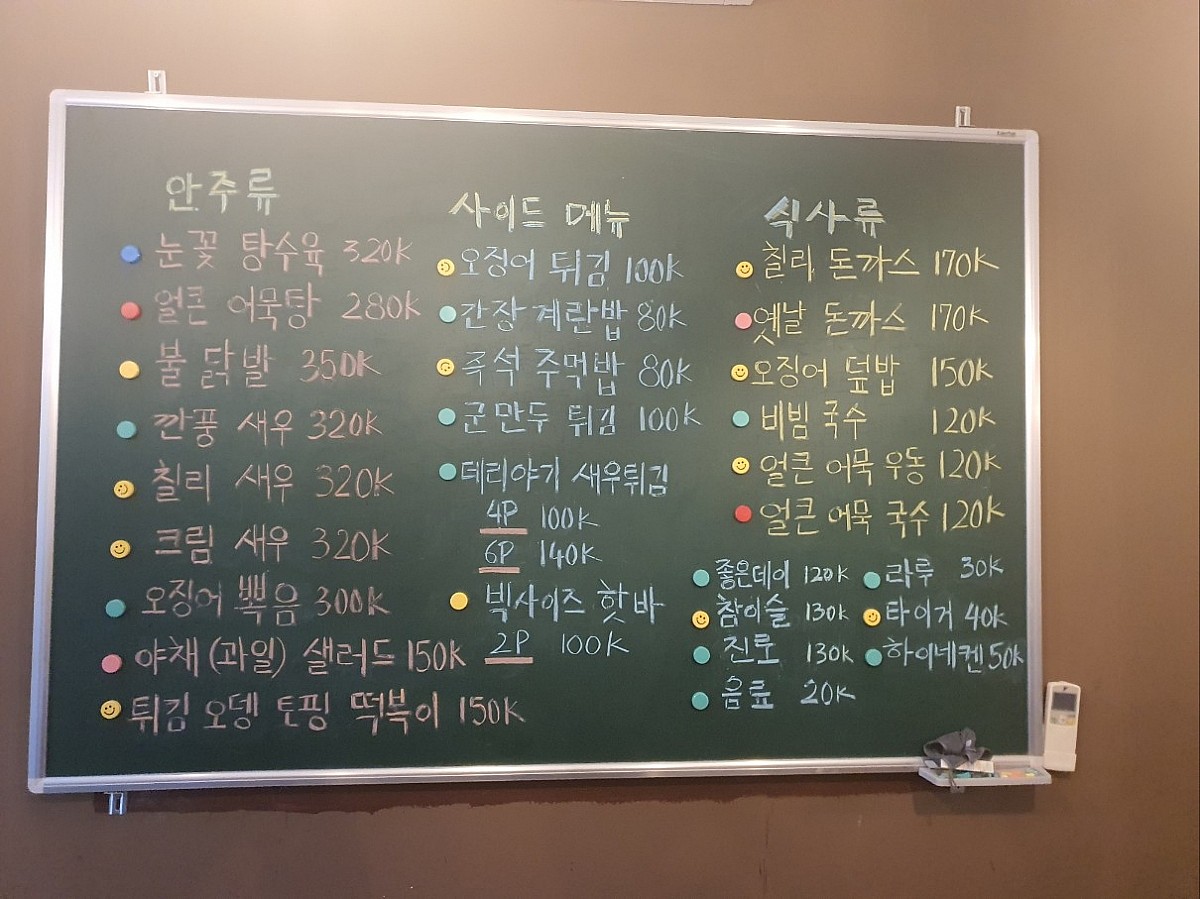 안주류
눈꽃 탕수육 320K
얼큰 어묵탕 280K
불닭발 350K
깐풍 새우 320K
칠리 새우 320K
크림 새우 320K
오징어 뽁음 300K
야채(과일) 샐러드 150K
튀김 오뎅 토핑 떡복이 150K
사이드 메뉴
오징어 튀김 100K
간장 계란밥 80K
즉석 주먹밥 80K
군만두 튀김 100K
테리야기 새우튀김
4P 100K
6P 140K
빅사이즈 핫바
2P 100K
식사류
칠리 돈까스 170K
옛날 돈까스 170K
오징어 덮밥 150K
비빔국수 120K
얼큰 어묵 우동 120K
얼큰 어묵 국수 120K
좋은데이 120K
참이슬 130K
진로 130K
음료 20K
라루 30K
타이거 40K
하이네켄 50K